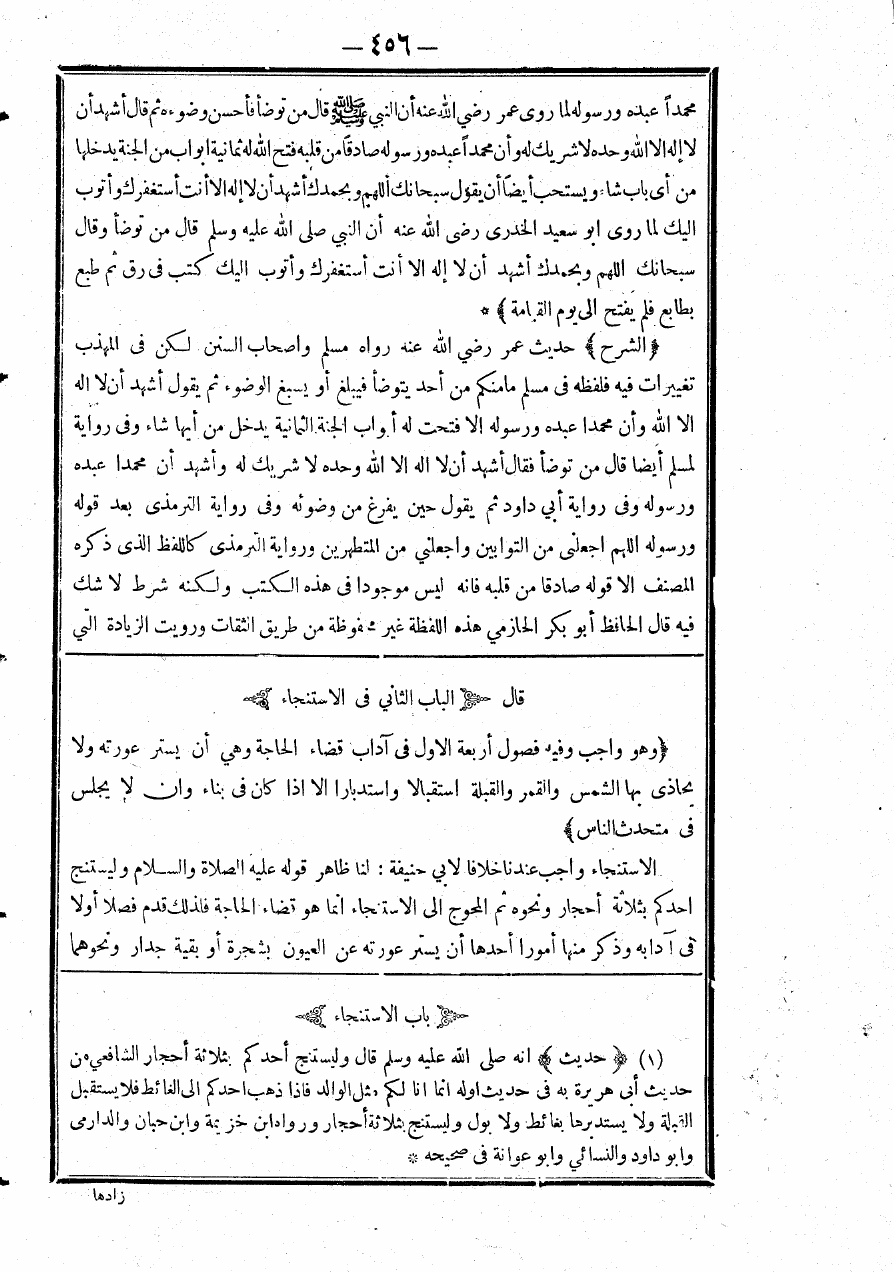 — ٤٥٦ —
محمداً عبده ورسوله لما روى عمر رضي الله عنه أن النبي ﷺ قال من توضأ فأحسن وضوءه ثم قال أشهد أن
لا إله الا الله وحده لا شريك له وأن محمداً عبده ورسوله صادقاً من قلبه فتح الله له ثمانية ابواب من الجنة يدخلها
من أى باب شاء ويستحب أيضاً أن يقول سبحانك أللهم وبحمدك أشهد أن لا إله الا أنت أستغفرك وأتوب
اليك لما روى ابو سعيد الخدرى رضي الله عنه أن النبي صلى الله عليه وسلم قال من توضأ وقال
سبحانك اللهم وبحمدك أشهد أن لا إله الا أنت أستغفرك وأتوب اليك كتب فى رق ثم طبع
بطابع فلم يفتح الى يوم القيامة ﴾ *
﴿ الشرح ﴾ حديث عمر رضي الله عنه رواه مسلم واصحاب السنن لكن فى المهذب
تغييرات فيه فلفظه فى مسلم مامنكم من أحد يتوضأ فيبلغ أو يسبغ الوضوء ثم يقول أشهد أن لا اله
الا الله وأن محمدا عبده ورسوله الا فتحت له أبواب الجنة الثمانية يدخل من أيها شاء وفى رواية
لمسلم أيضا قال من توضأ فقال أشهد أن لا اله الا الله وحده لا شريك له وأشهد أن محمدا عبده
ورسوله وفى رواية أبي داود ثم يقول حين يفرغ من وضوئه وفى رواية الترمذى بعد قوله
ورسوله اللهم اجعلنى من التوابين واجعلني من المتطهرين ورواية الترمذى كاللفظ الذى ذكره
المصنف الا قوله صادقا من قلبه فانه ليس موجودا فى هذه الكتب ولكنه شرط لا شك
فيه قال الحافظ أبو بكر الحازمي هذه اللفظة غير محفوظة من طريق الثقات ورويت الزيادة التي
قال ﴿ الباب الثاني فى الاستنجاء ﴾
﴿ وهو واجب وفيه فصول أربعة الاول فى آداب قضاء الحاجة وهي أن يستر عورته ولا
يحاذى بها الشمس والقمر والقبلة استقبالا واستدبارا الا اذا كان فى بناء وان لا يجلس
فى متحدث الناس ﴾
الاستنجاء واجب عندنا خلافا لابي حنيفة : لنا ظاهر قوله عليه الصلاة والسلام وليستنج
احدكم بثلاثة أحجار ونحوه ثم المحوج الى الاستنجاء انما هو قضاء الحاجة فلذلك قدم فصلا أولا
فى آدابه وذكر منها أمورا أحدها أن يستر عورته عن العيون بشجرة أو بقية جدار ونحوهما
﴿ باب الاستنجاء ﴾
(١) ﴿ حديث ﴾ انه صلى الله عليه وسلم قال وليستنج أحدكم بثلاثة أحجار الشافعي من
حديث أبى هريرة به فى حديث اوله انما انا لكم مثل الوالد فاذا ذهب احدكم الى الغائط فلا يستقبل
القبلة ولا يستدبرها بغائط ولا بول وليستنج بثلاثة أحجار ورواه ابن خزيمة وابن حبان والدارمى
وابو داود والنسائي وابو عوانة فى صحيحه *
زادها